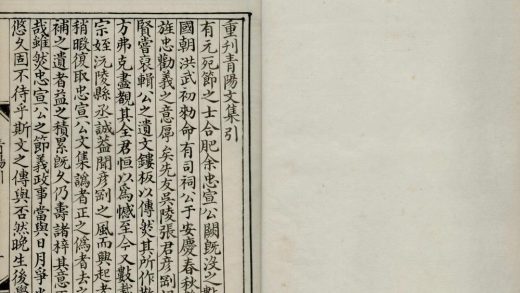 重刊青陽文集引
有元死節之士合肥余忠宣公闕既沒之數
國朝洪武初勑命有司祠公于安慶春秋
旌忠勸義之意厚矣先友吳陵張君彥剛
賢嘗裒輯公之遺文鏤板以傳然其所作散
方弗克盡觀其全君恒以為憾至今又數載
宗姪沅陵縣丞誠益聞彥剛之風而興起者
稍暇復取忠宣公文集譌者正之偽者去之
補之遺者益之積累既久仍壽諸梓其意
哉雖然忠宣公之節義政事當與日月爭
悠久固不待乎斯文之傳與否然晚生後學